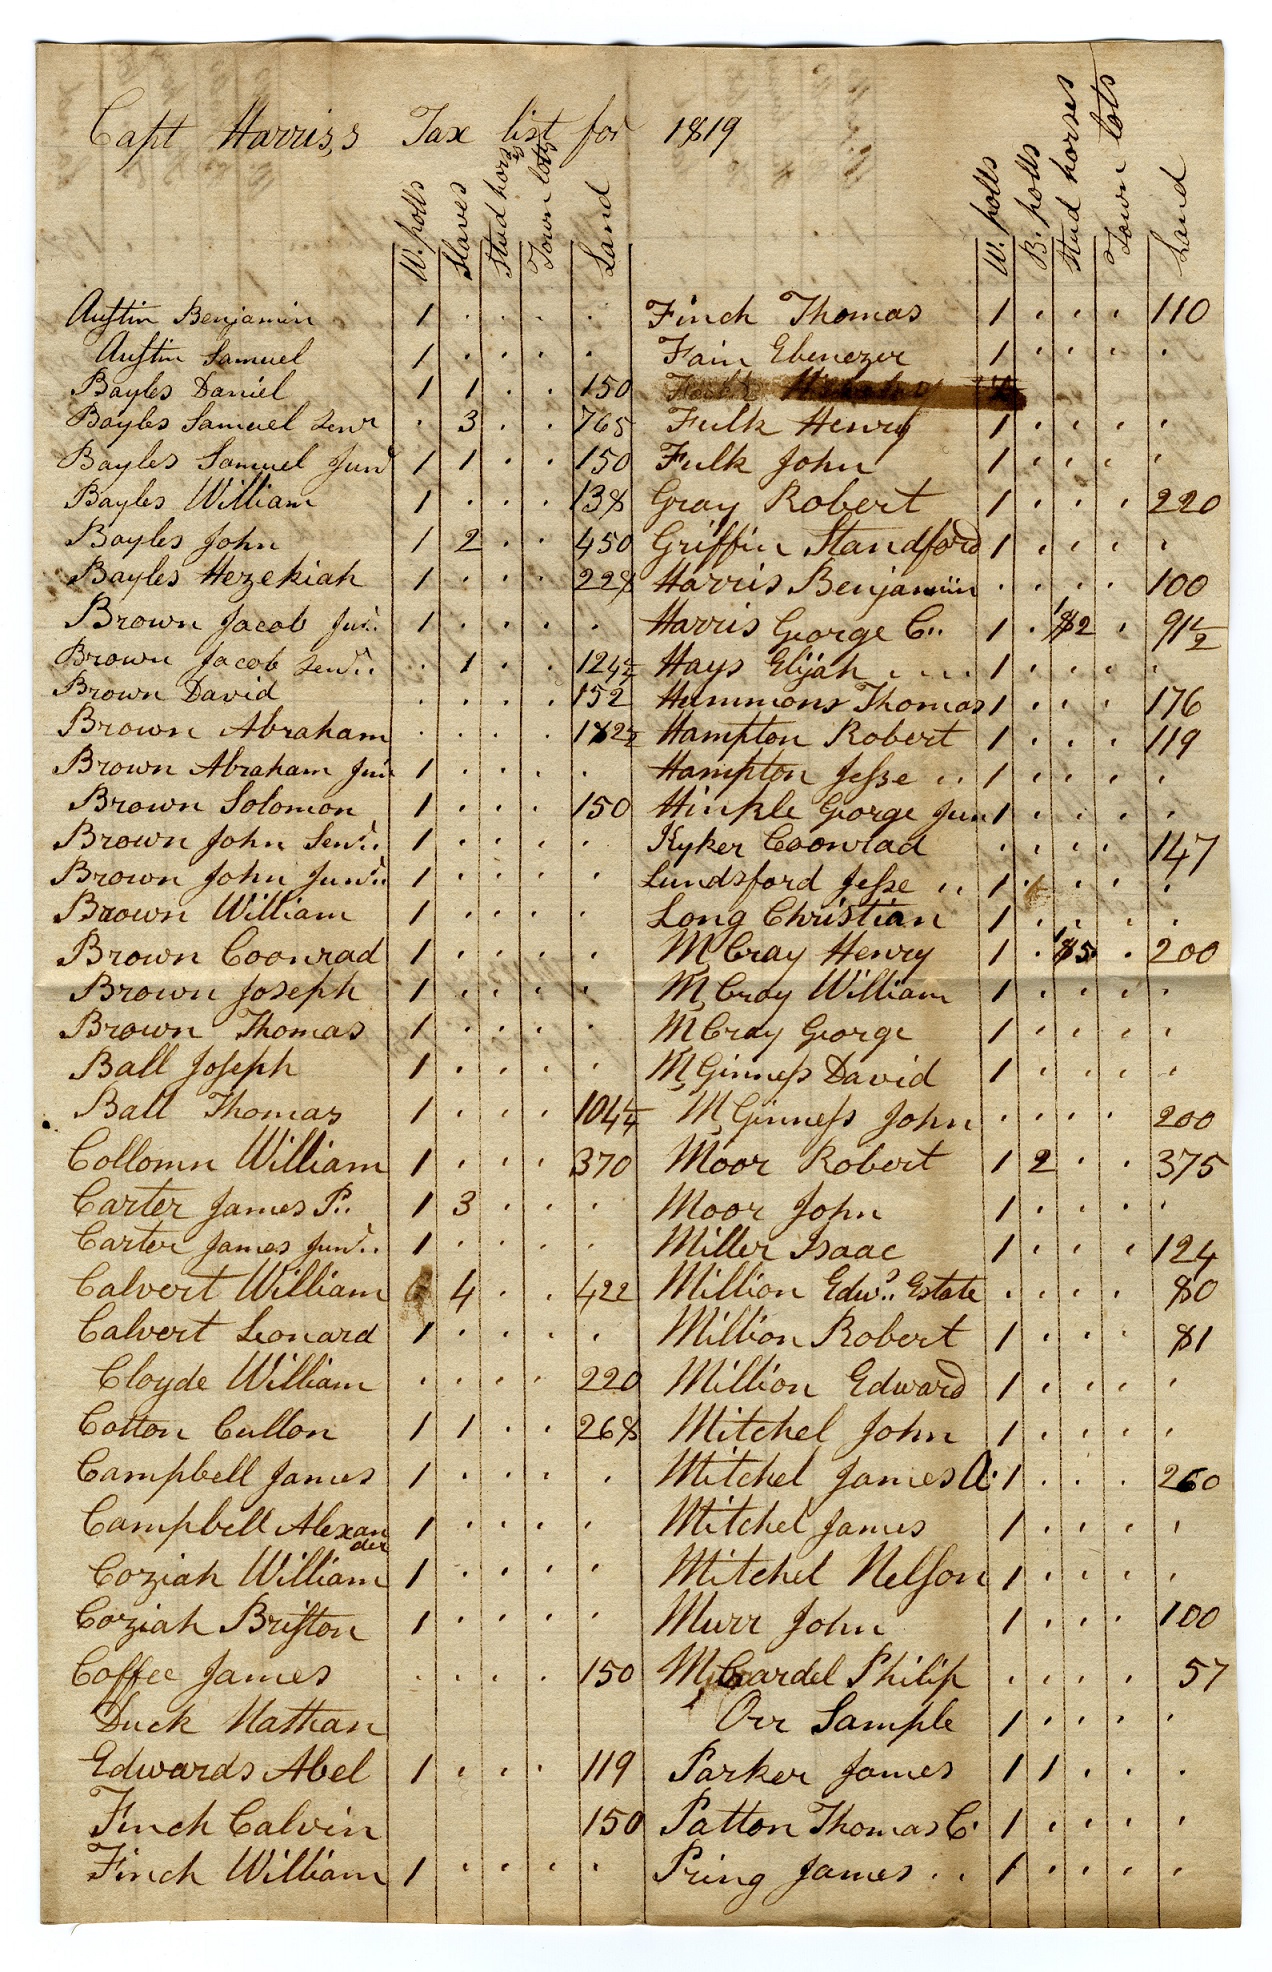 Capt Harris,s Tax list for 1819
W. polls Slaves Stud horses Town lots Land
Austin Benjamin 1 . . . .
Austin Samuel 1 . . . .
Bayles Daniel 1 1 . . 150
Bayles Samuel Senr . 3 . . 765
Bayles Samuel Junr 1 1 . . 150
Bayles William 1 . . . 138
Bayles John 1 2 . . 450
Bayles Hezekiah 1 . . . 228
Brown Jacob Jur.. 1 . . . .
Brown Jacob Senr.. . 1 . . 124½
Brown David . . . . 152
Brown Abraham . . . . 182½
Brown Abraham Jun 1 . . . .
Brown Solomon 1 . . . 150
Brown John Senr.. 1 . . . .
Brown John Junr.. 1 . . . .
Brown William 1 . . . .
Brown Coonrad 1 . . . .
Brown Joseph 1 . . . .
Brown Thomas 1 . . . .
Ball Joseph 1 . . . .
Ball Thomas 1 . . . 104¼
Collomn William 1 . . . 370
Carter James P.. 1 3 . . .
Carter James Junr.. 1 . . . .
Calvert William 4 . . 422
Calvert Leonard 1 . . . .
Cloyde William . . . . 220
Cotton Cullon 1 1 . . 268
Campbell James 1 . . . .
Campbell Alexander 1 . . . .
Coziah William 1 . . . .
Coziah Briston 1 . . . .
Coffee James . . . . 150
Duck Nathan
Edwards Abel 1 . . . 119
Finch Calvin 150
Finch William 1 . . . .
W. polls B. polls Stud horses Town lots Land
Finch Thomas 1 . . . 110
Fain Ebenezer 1 . . . .
Fulk Henry 1 . . . .
Fulk John 1 . . . .
Gray Robert 1 . . . 220
Griffin Standford 1 . . . .
Harris Benjamin . . . . 100
Harris George C.. 1 . 1$2 . 91½
Hays Elijah . . . . 1 . . . .
Hammons Thomas 1 . . . 176
Hampton Robert 1 . . . 119
Hampton Jesse .. 1 . . . .
Hinkle George Jun 1 . . . .
Kyker Coonrad . . . . 147
Lundsford Jesse .. 1 . . . .
Long Christian 1 . . . .
McCray Henry 1 . 1$5 . 200
McCray William 1 . . . .
McCray George 1 . . . .
McGinness David 1 . . . .
McGinness John . . . . 200
Moor Robert 1 2 . . 375
Moor John 1 . . . .
Miller Isaac 1 . . . 124
Million Edwd.. Estate . . . . 80
Million Robert 1 . . . 81
Million Edward 1 . . . .
Mitchel John 1 . . . .
Mitchel James A. 1 . . . 260
Mitchel James 1 . . . .
Mitchel Nelson 1 . . . .
Murr John 1 . . . 100
McCardel Philip . . . . 57
Orr Sample 1 . . . .
Parker James 1 1 . . .
Patton Thomas C. 1 . . . .
Pring James . . 1 . . . .